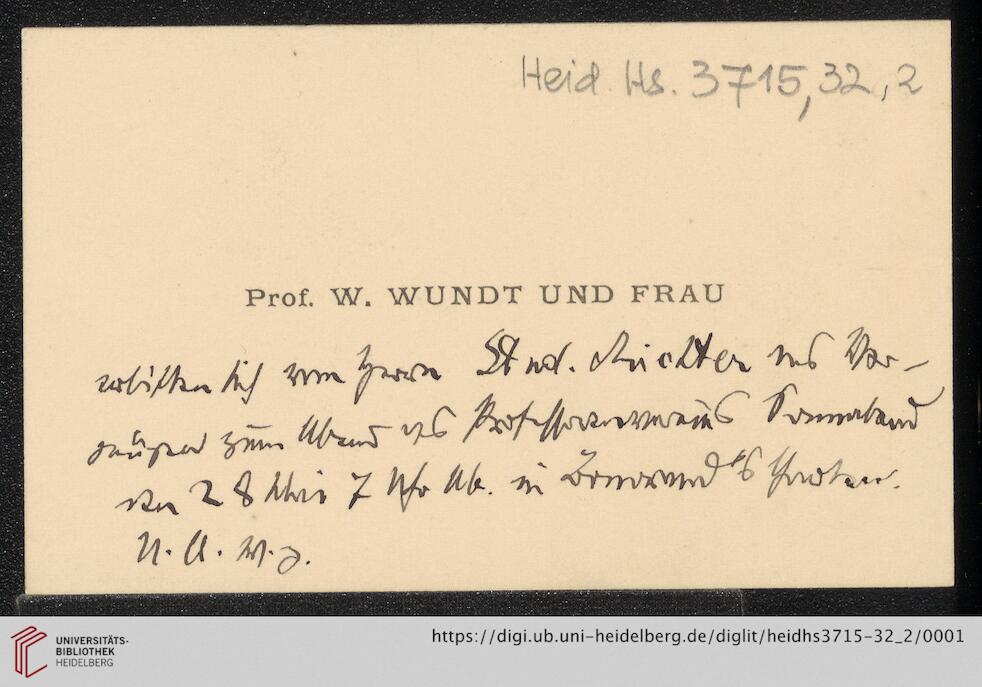 Heid. Hs. 3715,32,2
Prof. W. WUNDT UND FRAU
erbitten sich von Herrn Stud. Richter das Ver-
gnügen zum Abend des Professorenvereins Sonnabend
den 28 Mai 7 Uhr Ab. in Bonorand's Garten.
U. A. w. g.
UNIVERSITÄTS-
BIBLIOTHEK
HEIDELBERG
https://digi.ub.uni-heidelberg.de/diglit/heidhs3715-32_2/0001